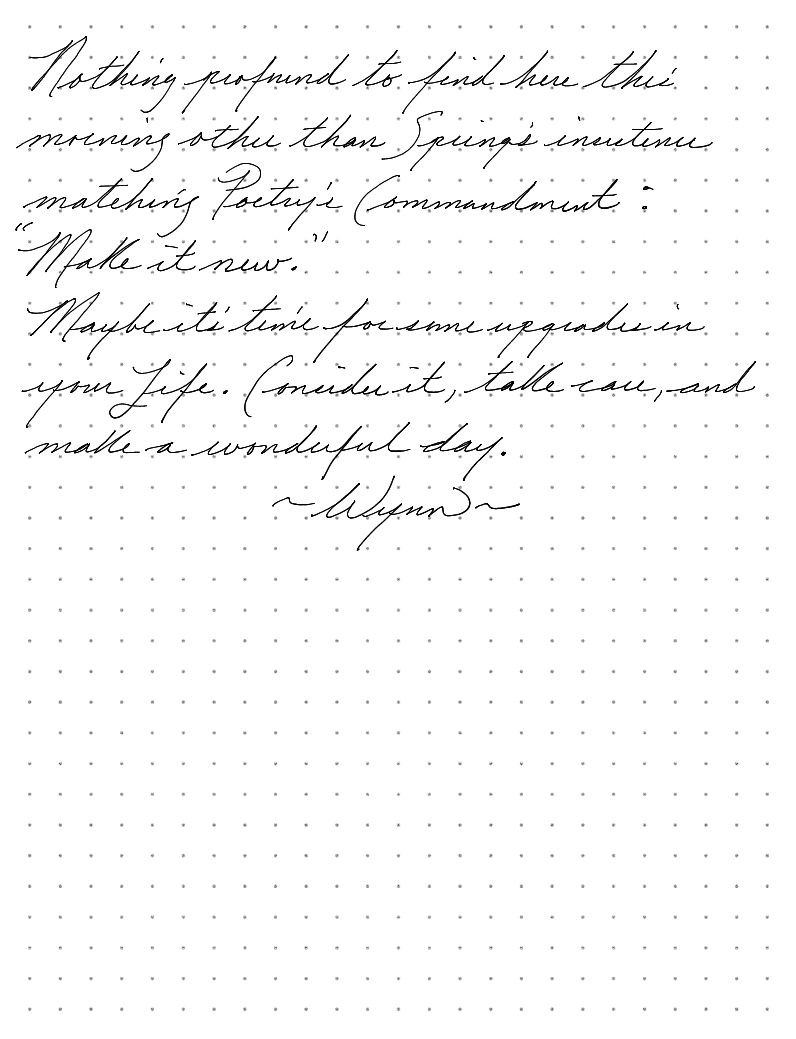 Nothing profound to find here this
morning other than Spring's insistence
matching Poetry's Commandment :
"Make it new."
Maybe it's time for some upgrades in
your Life. Consider it, take care, and
make a wonderful day.
~Wynn~